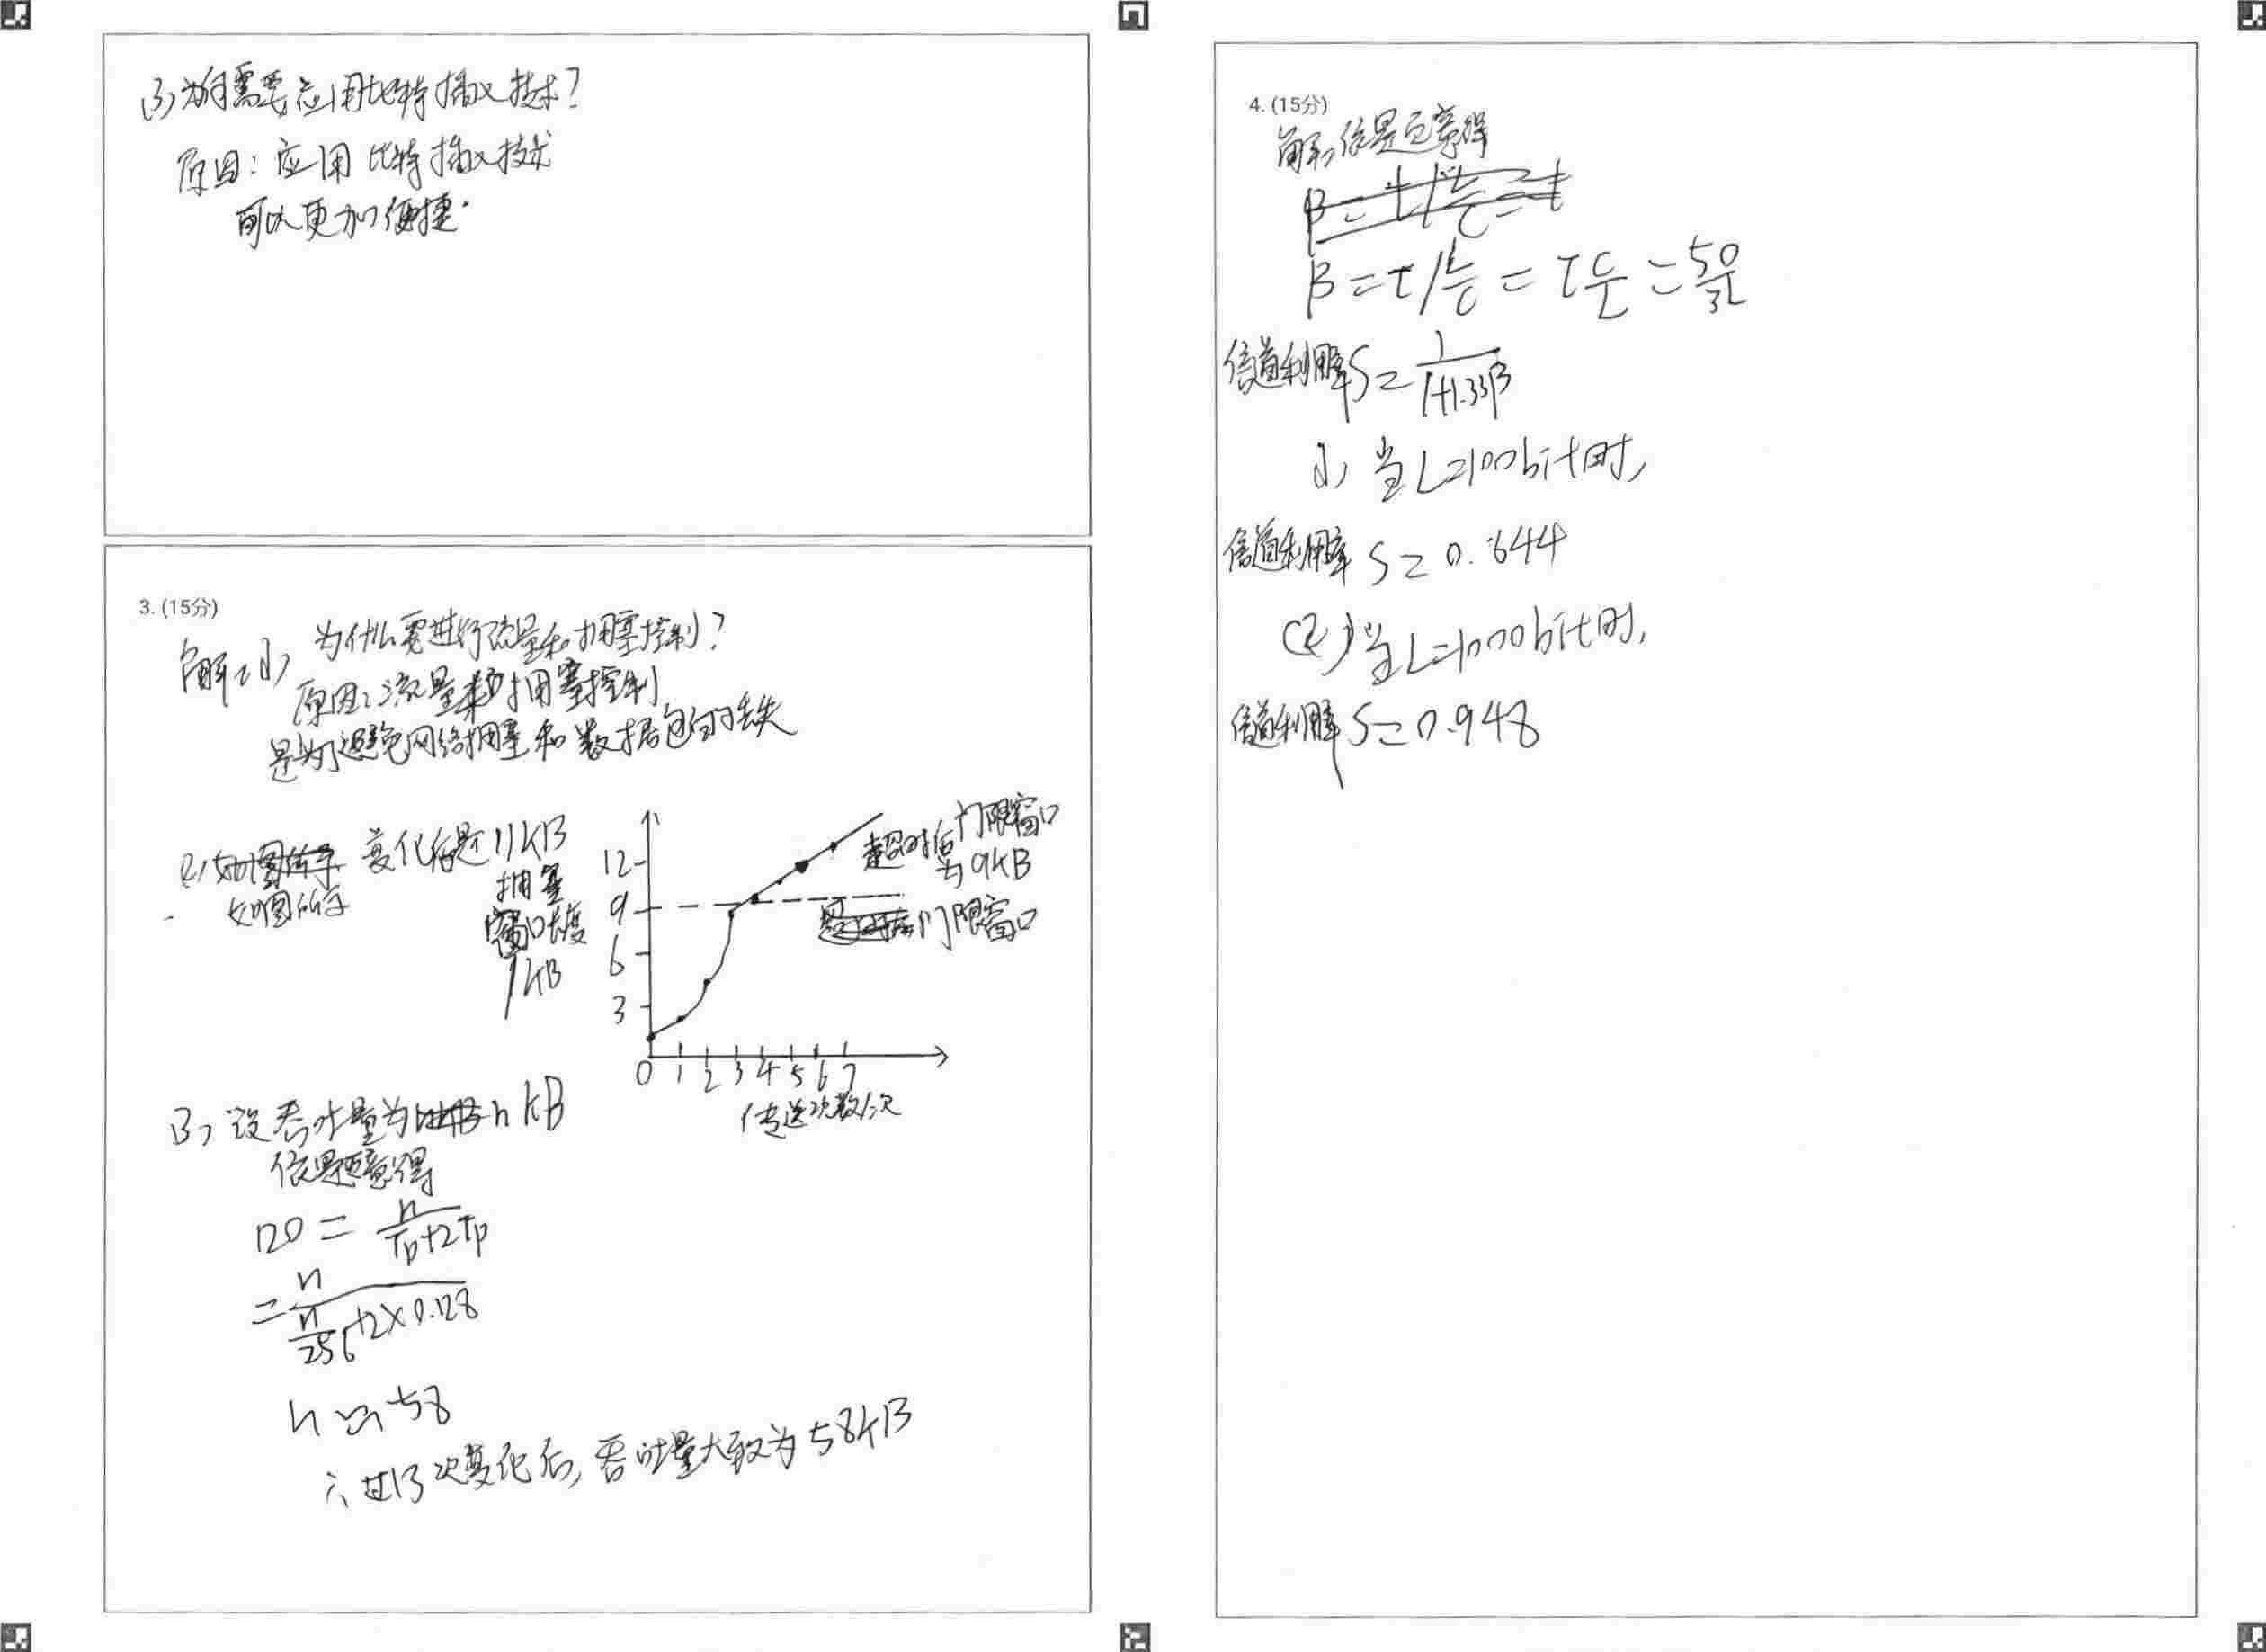 (3) 为何需要应用比特插入技术?
原因: 应用比特插入技术
可以更加便捷.
3. (15分)
解:(1) 为什么要进行流量和拥塞控制?
原因:流量和拥塞控制
是为了避免网络拥塞和数据包的丢失
(2) 变化后是11kB
如图所示
拥塞
窗口长度
/kB
12
9
6
3
0 1 2 3 4 5 6 7
传送次数/次
超时后门限窗口
为9kB
门限窗口
(3) 设吞吐量为 n kB
依题意得
120 = n/(Tp+2Tp)
= n/(n/256+2×0.128)
n ≈ 58
∴ 过13次变化后, 吞吐量大致为58kB
4. (15分)
解, 依题意得
β = τ/(L/C) = τ C/L = 50/3L
信道利用率 S = 1/(1+1.33β)
(1) 当L=100bit时,
信道利用率 S = 0.644
(2) 当L=1000bit时,
信道利用率 S = 0.948